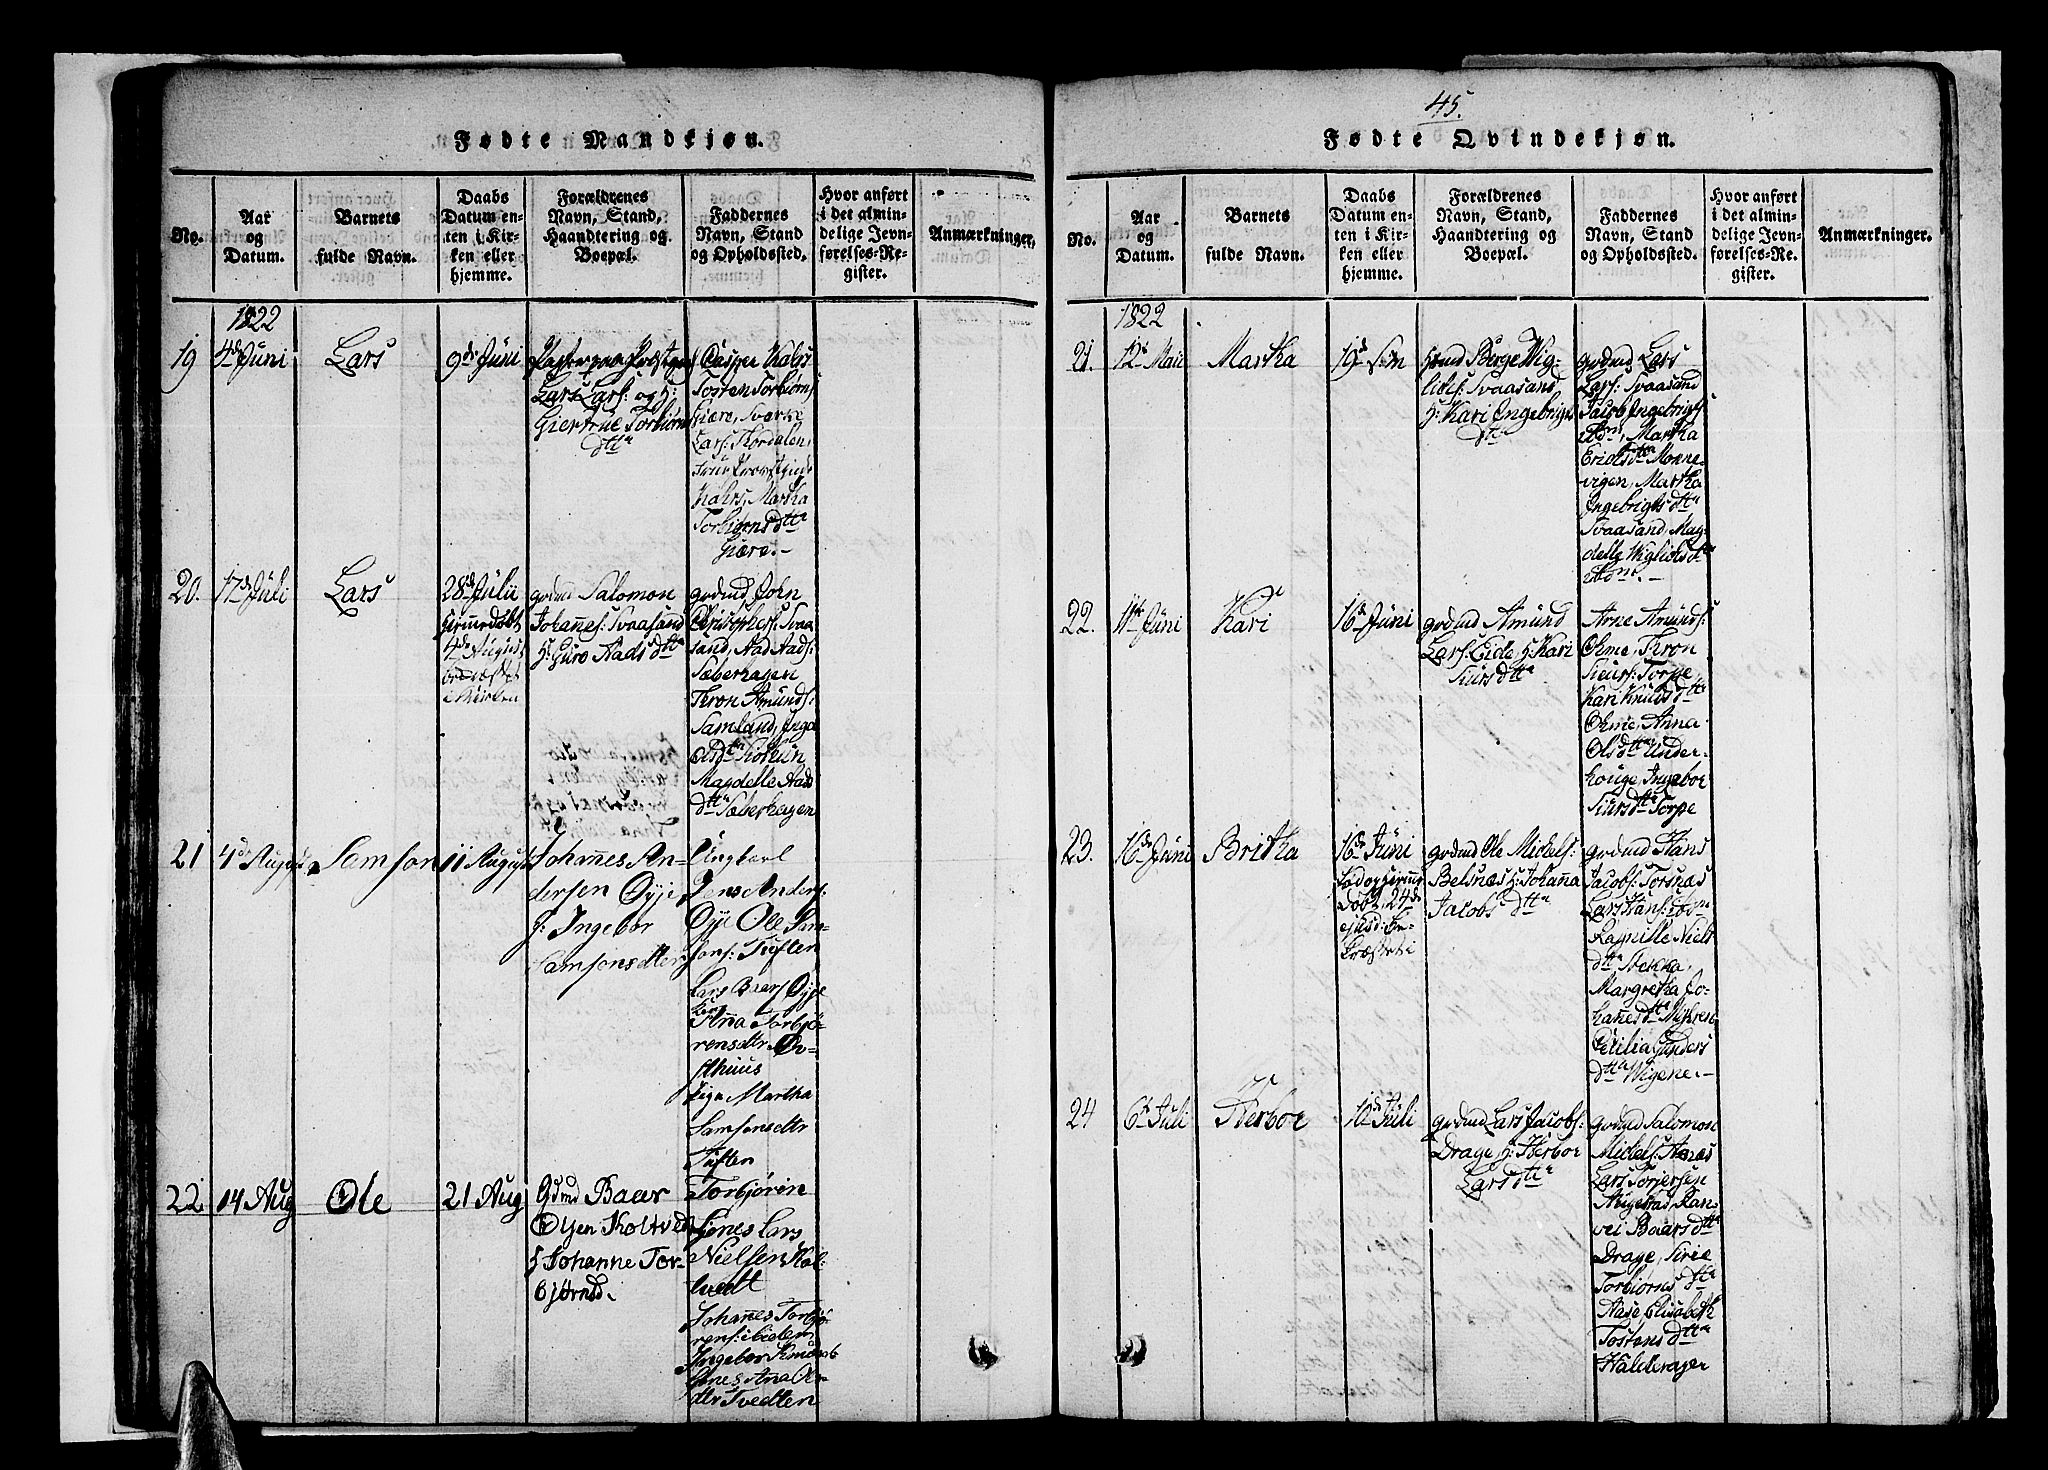 45.
Fødte Mandkjøn.
No.
Aar
og
Datum.
Barnets
fulde Navn.
Daabs
Datum en-
ten i Kir-
ken eller
hjemme.
Forældrenes
Navn, Stand,
Haandtering og
Boepæl.
Faddernes
Navn, Stand
og Opholdssted.
Hvor anført
i det almin-
delige Jevn-
førelses-Re-
gister.
Anmærkninger.
1822
19
4de Juni
Lars
9de Juni
Lars Lars: og H:
Giertrue Torbiørns
dtta
Casper Kahrs
Tosten Torbiørns:
Giære, Sverke
Lars: Nordalen,
Kahrs, Martha
Torbiørns dtta
Giære. -
20.
17de Juli
Lars
28de Julii
hiemedøbt
4de August
i Kirken
grdmd Salomon
Johanes: Svaasand
H: Guro Aads dtta
grdmd John
Christophers: Svaa
sand, Aad Aads:
Sæberhagen
Thron Amunds:
Samland, Inga
Ols dtta
Magdelle Aads
dtta Sæberhagen
21
4de August
Samson
11 August
Johannes An-
dersen Øyje
H: Ingebor
Samsonsdtter
Ungkarl
Jens Anders:
Øyje Ole Sam-
sons: Tuften
Lars Baars Øyje
Anna Torbjø-
rensdtr
sthuus
Pige Martha
Samsonsdtr
Tuften
22
14 Aug
Ole
21 Aug
Gdmd Baar
Olsen Koltved
H Johanne Tor-
bjørnsd.
Torbjøren
Lars
Nielsen Kol-
tvedt
Johannes Torbjø-
rens:
Ingebor
Ana
dtr Tvedten
Fødte Qvindekjøn.
No.
Aar
og
Datum.
Barnets
fulde Navn.
Daabs
Datum en-
ten i Kir-
ken eller
hjemme.
Forældrenes
Navn, Stand,
Haandtering og
Boepæl.
Faddernes
Navn, Stand
og Opholdssted.
Hvor anført
i det almin-
delige Jevn-
førelses-Re-
gister.
Anmærkninger.
1822
21.
12te Mai
Martha
19de
grdmd Berge Wig-
lichs: Svaasand,
H: Kari Ingebrigts
dtta
grdmd Lars
Lars: Svaasand
Jacob Ingebrigts:
ibdm, Martha
Erichs dtta Monne-
vigen, Martha
Ingebrigts dtta
Svaasand, Mag-
delle Wiglichs dtta
ibdm. -
22.
11te Juni
Kari
16de Juni
grdmd Amund
Lars: Eide, H: Kari
Siurs dtta
Arne Amunds:
Ohme, Thron
Siurs: Torpe
Kari Knuds dtta
Ohme, Anna
Ols dtta Under-
houge, Ingebor
Siurs dtta Torpe
23.
16de Juni
Britha
16de Juni
fød og hiemme
døbt, 24de
ejusd: be-
kræftet i
grdmd Ole Michels:
Belsnæs H: Johanna
Jacobs dtta
grdmd Hans
Jacobs: Torsnæs
Lars Hans: ibdm
Ragnille Niels
dtta
Margretha Jo-
hanes dtta
Cecilia Gunders
dtta Wigene. -
24
6te Juli
Herbor
10de Juli
grdmd Lars Jacobs:
Drage, H: Herbor
Lars dtta
grdmd Salomon
Michels: Aanæs
Lars Torgersen
Augestad, Ran-
vei Baars dtta
Drage, Sirie
Torbiørns dtta
Aase, Elisabeth
Tostens dtta
Halderager